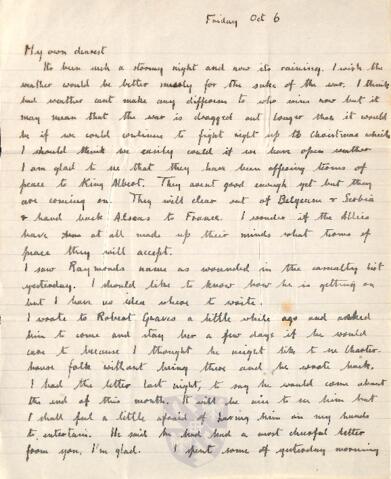 Friday Oct 6
My own dearest
Its been such a stormy night and now its raining. I wish the
weather would be better merely for the sake of the war. I think
bad weather cant make any difference to who wins now but it
may mean that the war is dragged out longer than it would
be if we could continue to fight right up to Christmas which
I should think we easily could if we have open weather
I am glad to see that they have been offering terms of
peace to King Albert. They arent good enough yet but they
are coming on. They will clear out of Belgium & Serbia
& hand back Alsace to France. I wonder if the Allies
have at all made up their minds what terms of
peace they will accept.
I saw Raymonds name as wounded in the casualty list
yesterday. I should like to know how he is getting on
but I have no idea where to write.
I wrote to Robert Graves a little while ago and asked
him to come and stay here a few days if he would
care to because I thought he might like to see Charter-
house folk without being there and he wrote back.
I had the letter last night, to say he would come about
the end of this month. It will be nice to see him but
I shall feel a little afraid of having him on my hands
to entertain. He said he had had a most cheerful letter
from you, I'm glad. I spent some of yesterday morning